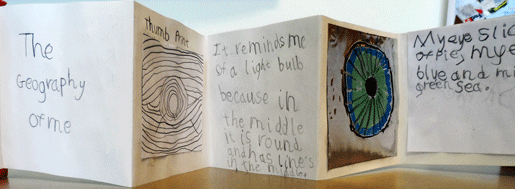 The
Geography
of me
Thumb Print
It reminds me
of a light bulb
because in
the middle
it is round
and has lines
in the middle.
My eye slic
of pies, my e
blue and mi
green sea.